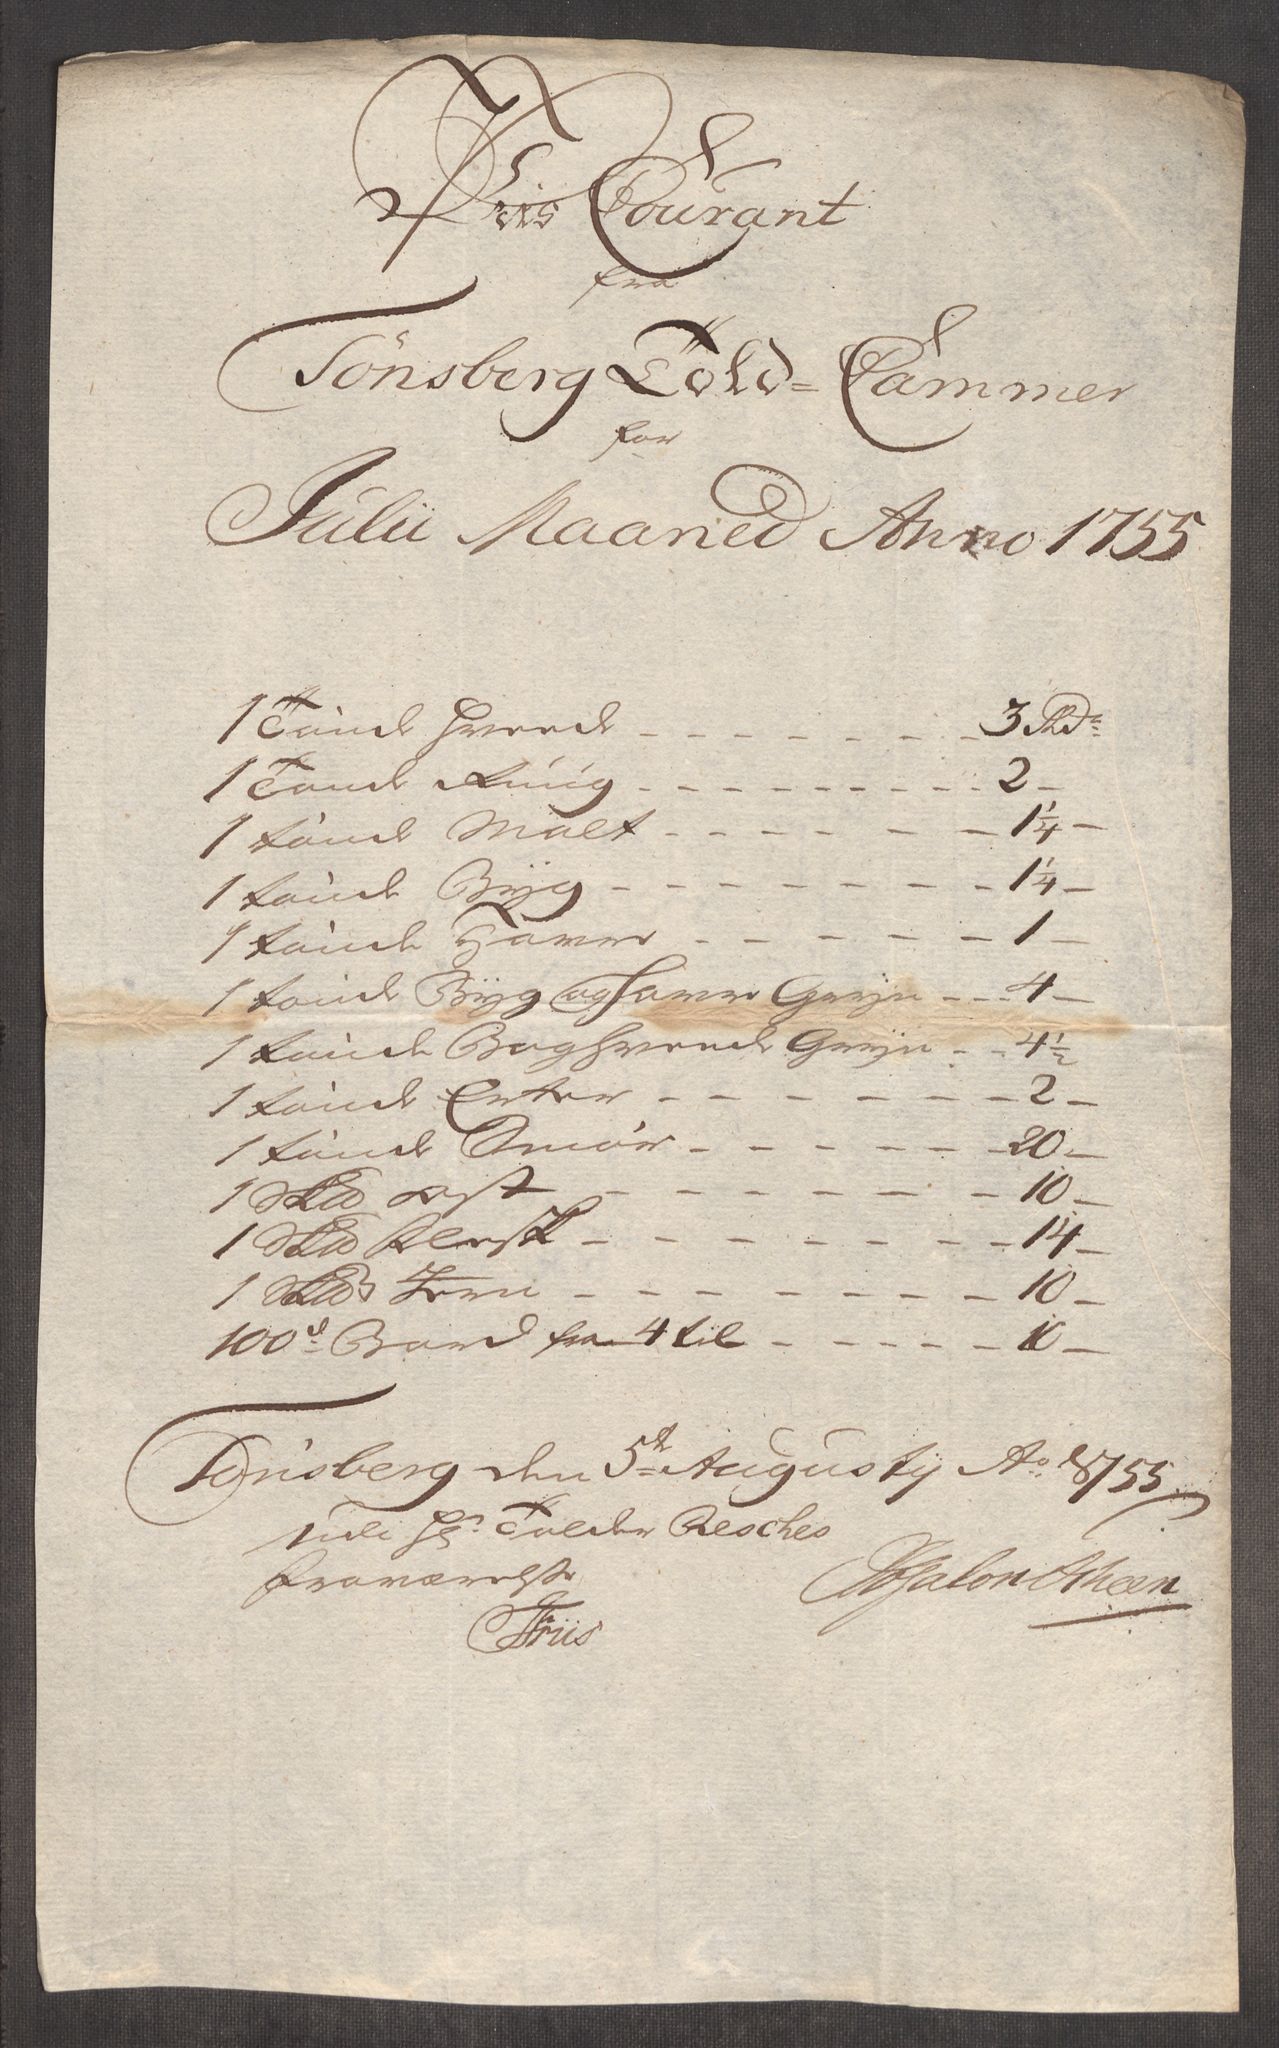 Priis Courant
fra
Tönsberg Told=Cammer
for
Julii Maaned Anno 1755
1 Tönde Hvede - - - - - - - 3 Rdr
1 Tönde Rüg - - - - - - - - - 2 -
1 tönde Malt - - - - - - - 1 1/4 -
1 tönde Byg - - - - - - - - 1 1/4 -
1 tönde Haver - - - - - - 1 -
1 tönde Byg og Haver Gryn - - - 4 -
1 tönde Boghvede Gryn - - 4 1/2
1 tönde Erter - - - - - - - 2 -
1 tönde Smör - - - - - - 20 -
1 Skd ost - - - - - - - - 10 -
1 Skd Flesk - - - - - - - - 14 -
1 Skd Jern - - - - - - - - 10 -
100d Bord fra 4 til - - - - - 10 -
Tönsberg den 5te Augusty Ao 1755
udi Hr Tolder Resches
fraværelse
Friis
Absalon